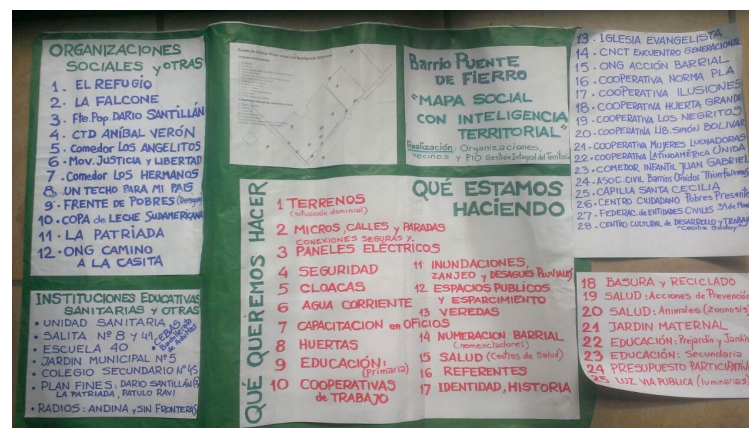 ORGANIZACIONES
SOCIALES y OTRAS
1. EL REFUGIO
2. LA FALCONE
3. Fte. Pop. DARIO SANTILLÁN
4. CTD ANÍBAL VERÓN
5. Comedor LOS ANGELITOS
6. Mov. JUSTICIA y LIBERTAD
7. Comedor LOS HERMANOS
8. UN TECHO PARA MI PAIS
9. FRENTE DE POBRES
10. COPA de LECHE SUDAMERICANA
11. LA PATRIADA
12. ONG CAMINO
A LA CASITA
INSTITUCIONES EDUCATIVAS
SANITARIAS y OTRAS
• UNIDAD SANITARIA
• SALITA Nº 8 y 41
• ESCUELA 40
CEBAS
• JARDIN MUNICIPAL Nº5
• COLEGIO SECUNDARIO Nº45
• PLAN FINES: DARIO SANTILLÁN
LA PATRIADA, PATULO RAVI
• RADIOS: ANDINA y SIN FRONTERAS
Barrio PUENTE
DE FIERRO
"MAPA SOCIAL
CON INTELIGENCIA
TERRITORIAL"
Realización: Organizaciones,
vecinos y PIO Gestión Integral del Territorio
QUÉ QUEREMOS HACER
QUÉ ESTAMOS
HACIENDO
1 TERRENOS
(situación dominial)
2 MICROS, CALLES y PARADAS
CONEXIONES SEGURAS y
3 PANELES ELÉCTRICOS
4 SEGURIDAD
5 CLOACAS
6 AGUA CORRIENTE
7 CAPACITACION en OFICIOS
8 HUERTAS
9 EDUCACIÓN:
(Primaria)
10 COOPERATIVAS
de TRABAJO
11 INUNDACIONES,
ZANJEO y DESAGUES PLUVIALES
12 ESPACIOS PUBLICOS
y ESPARCIMIENTO
13 VEREDAS
14 NUMERACION BARRIAL
(nomencladores)
15 SALUD (Centros de Salud)
16 REFERENTES
17 IDENTIDAD, HISTORIA
13. IGLESIA EVANGELISTA
14. CNCT ENCUENTRO GENERACIONAL
15. ONG ACCIÓN BARRIAL
16. COOPERATIVA NORMA PLA
17. COOPERATIVA ILUSIONES
18. COOPERATIVA HUERTA GRANDE
19. COOPERATIVA LOS NEGRITOS
20. COOPERATIVA LIB. SIMÓN BOLIVAR
21. COOPERATIVA MUJERES LUCHADORAS
22. COOPERATIVA LATINOAMÉRICA UNIDA
23. COMEDOR INFANTIL JUAN GABRIEL
24. ASOC. CIVIL Barrios Unidos
25. CAPILLA SANTA CECILIA
26. CENTRO CIUDADANO Pobres Presente
27. FEDERAC. de ENTIDADES CIVILES
28. CENTRO CULTURAL de DESARROLLO y TRABAJO
18 BASURA y RECICLADO
19 SALUD: Acciones de Prevención
20 SALUD: Animales (zoonosis)
21 JARDIN MATERNAL
22 EDUCACIÓN: Prejardín y Jardín
23 EDUCACIÓN: Secundaria
24 PRESUPUESTO PARTICIPATIVO
25 LUZ VIA PUBLICA (luminarias)